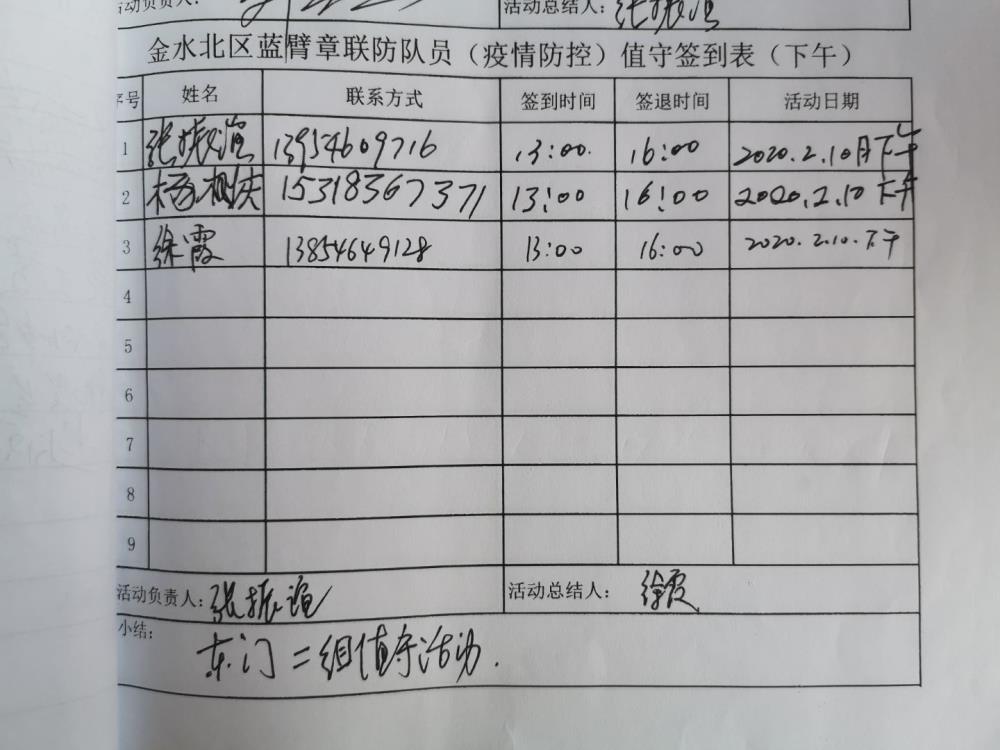 活动负责人：
活动总结人：张振谊
金水北区蓝臂章联防队员（疫情防控）值守签到表（下午）
序号 姓名 联系方式 签到时间 签退时间 活动日期
1 张振谊 13954609716 13:00. 16:00 2020.2.10月下午
2 杨 15318367371 13:00 16:00 2020.2.10 下午
3 徐霞 13854649128 13:00 16:00 2020.2.10.下午
4
5
6
7
8
9
活动负责人：张振谊 活动总结人：徐霞
小结：
东门二组值守活动.